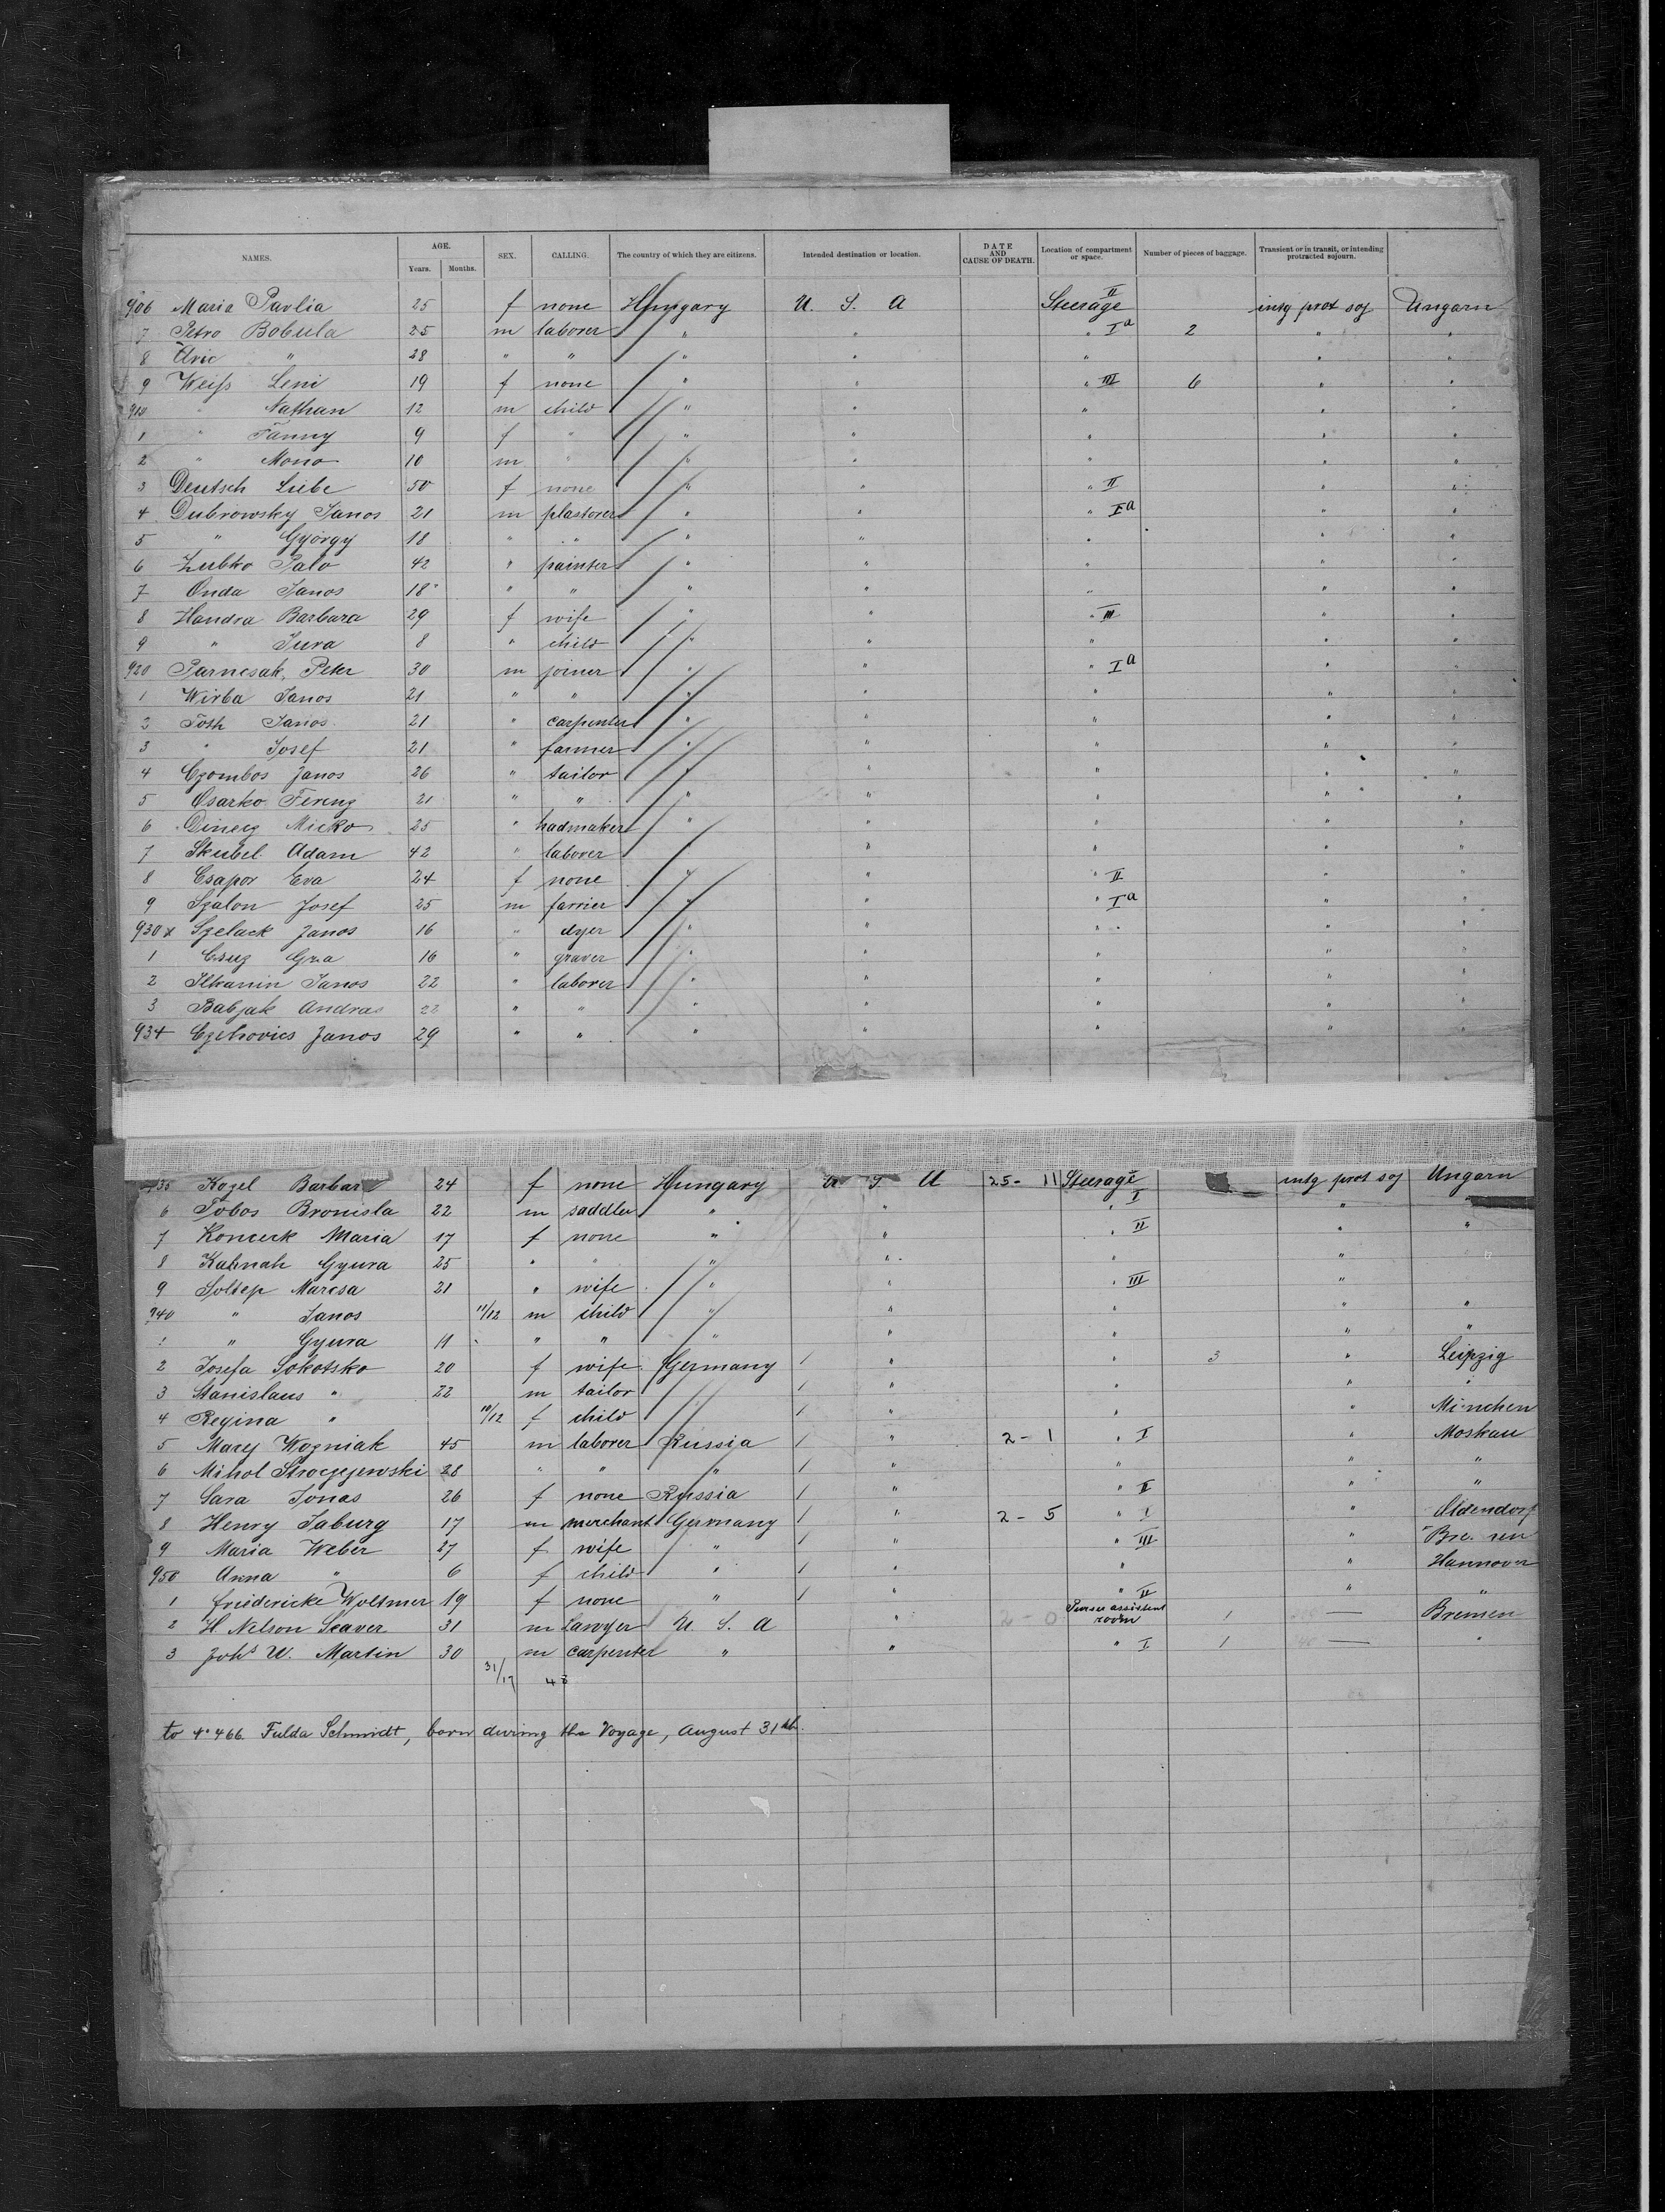 NAMES. AGE. Years. Months. SEX. CALLING. The country of which they are citizens. Intended destination or location. DATE AND CAUSE OF DEATH. Location of compartment or space. Number of pieces of baggage. Transient or in transit, or intending protracted sojourn.
906 Maria Pavlia 25 f none Hungary U. S. A Steerage II intg prot soj Ungarn
7 Petro Bobula 25 m laborer " " " Ia 2 " "
8 Uric " 28 " " " " " " "
9 Weiss Leni 19 f none " " " III 6 " "
910 " Nathan 12 m child " " " " "
1 " Fanny 9 f " " " " " "
2 " Mono 10 m " " " " " "
3 Deutsch Liebe 50 f none " " " II " "
4 Dubrowsky Janos 21 m plastorer " " " Ia " "
5 " György 18 " " " " " " "
6 Zubko Palo 42 " painter " " " " "
7 Onda Janos 18 " " " " " " "
8 Handra Barbara 29 f wife " " " III " "
9 " Jura 8 " child " " " " "
920 Parncsak, Peter 30 m joiner " " " Ia " "
1 Wirba Janos 21 " " " " " " "
2 Toth Janos 21 " carpenter " " " " "
3 " Josef 21 " farmer " " " " "
4 Czombos Janos 26 " tailor " " " " "
5 Osarko Ferenz 21 " " " " " " "
6 Dinerg Micko 25 " hadmaker " " " " "
7 Skubel Adam 42 " laborer " " " " "
8 Csapor Eva 24 f none " " " II " "
9 Szalon Josef 25 m farrier " " " Ia " "
930 x Szelack Janos 16 " dyer " " " " "
1 Csuz Gra 16 " graver " " " " "
2 Ilkanin Janos 22 " laborer " " " " "
3 Babjak Andras 22 " " " " " " "
934 Czehovics Janos 29 " " " " " " "
935 Kozel Barbar 24 f none Hungary U S A 25 - 11 Steerage intg prot soj Ungarn
6 Tobos Bronisla 22 m saddler " " " I "
7 Koncerk Maria 17 f none " " " II " "
8 Kahnah Gyura 25 " " " " " "
9 Soltep Marcsa 21 " wife " " " III "
940 " Janos 11/12 m child " " " " "
1 " Gyura 11 " " " " " " "
2 Josefa Sokotsko 20 f wife Germany / " " 3 " Leipzig
3 Stanislaus " 22 m tailor / " " " "
4 Regina " 10/12 f child / " " " München
5 Marej Wozniak 45 m laborer Russia / " 2 - 1 " I " Moskau
6 Mihol Stroczejewski 28 " " " / " " " "
7 Sara Jonas 26 f none Russia / " " II " "
8 Henry Jaburg 17 m merchant Germany / " 2 - 5 " I " Oldendorf
9 Maria Weber 27 f wife " / " " III " Bremen
950 Anna " 6 f child " / " " " Hannover
1 Friedericke Woltmer 19 f none " / " " II " "
2 H Nelson Seaver 31 m Lawyer U. S. A " 2 - 0 Purser assistent room 1 — Bremen
3 Johs W. Martin 30 m carpenter " " " I 1 — "
31/17 48
to No 466. Fulda Schmidt, born during the Voyage, August 31th.